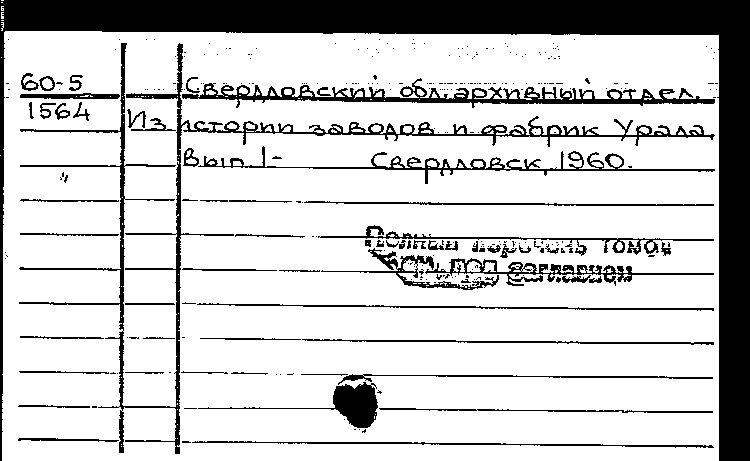 60-5 Свердловский обл. архивный отдел.
1564 Из истории заводов и фабрик Урала.
Вып. 1- Свердловск, 1960.
Полный перечень томов
см. под заглавием